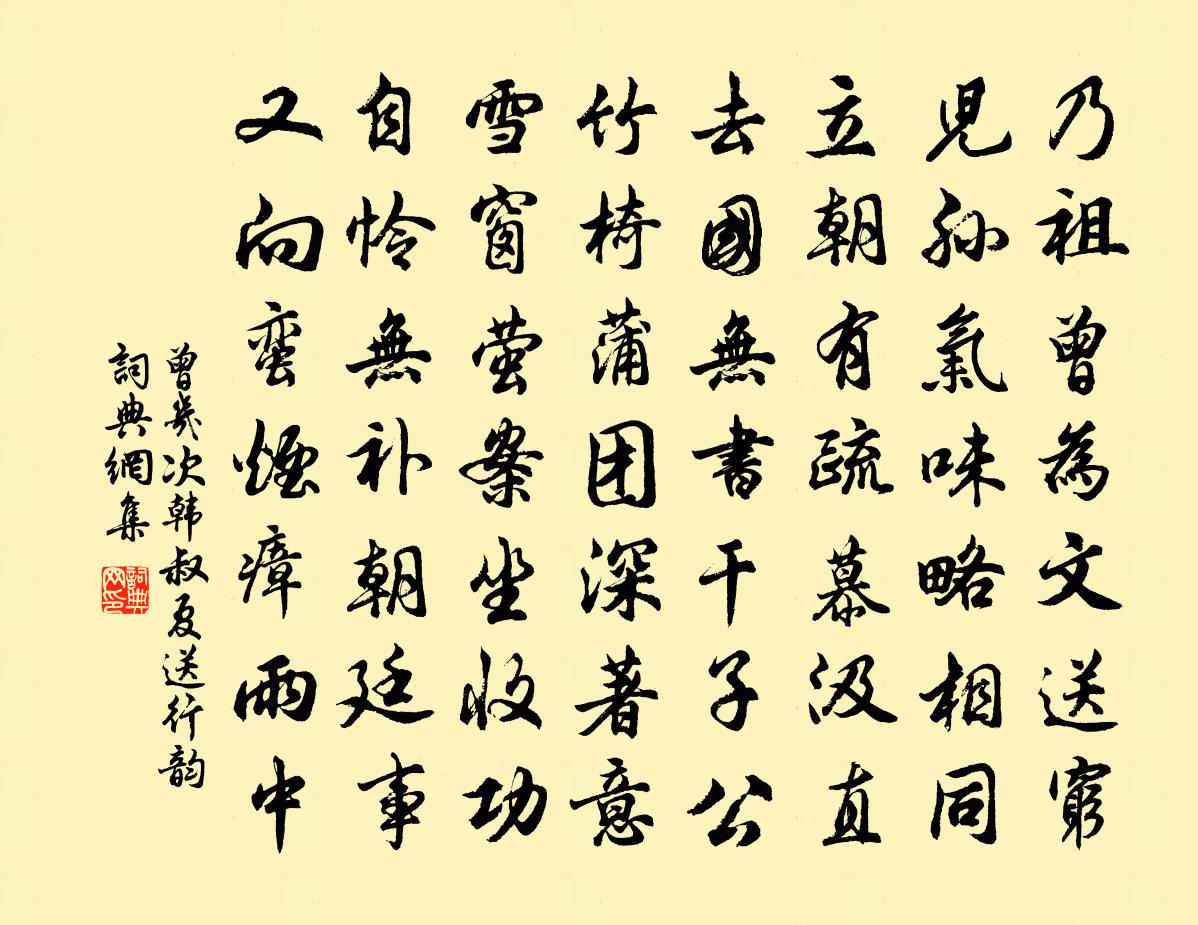 乃祖曾為文送窮
兒孫氣味略相同
立朝有疏慕汲直
去國無書干子公
竹椅蒲团深著意
雪窗萤案坐收功
自怜無补朝廷事
又向蛮煙瘴雨中
曾幾次韩叔夏送行韵
詞典網集
詞典網印